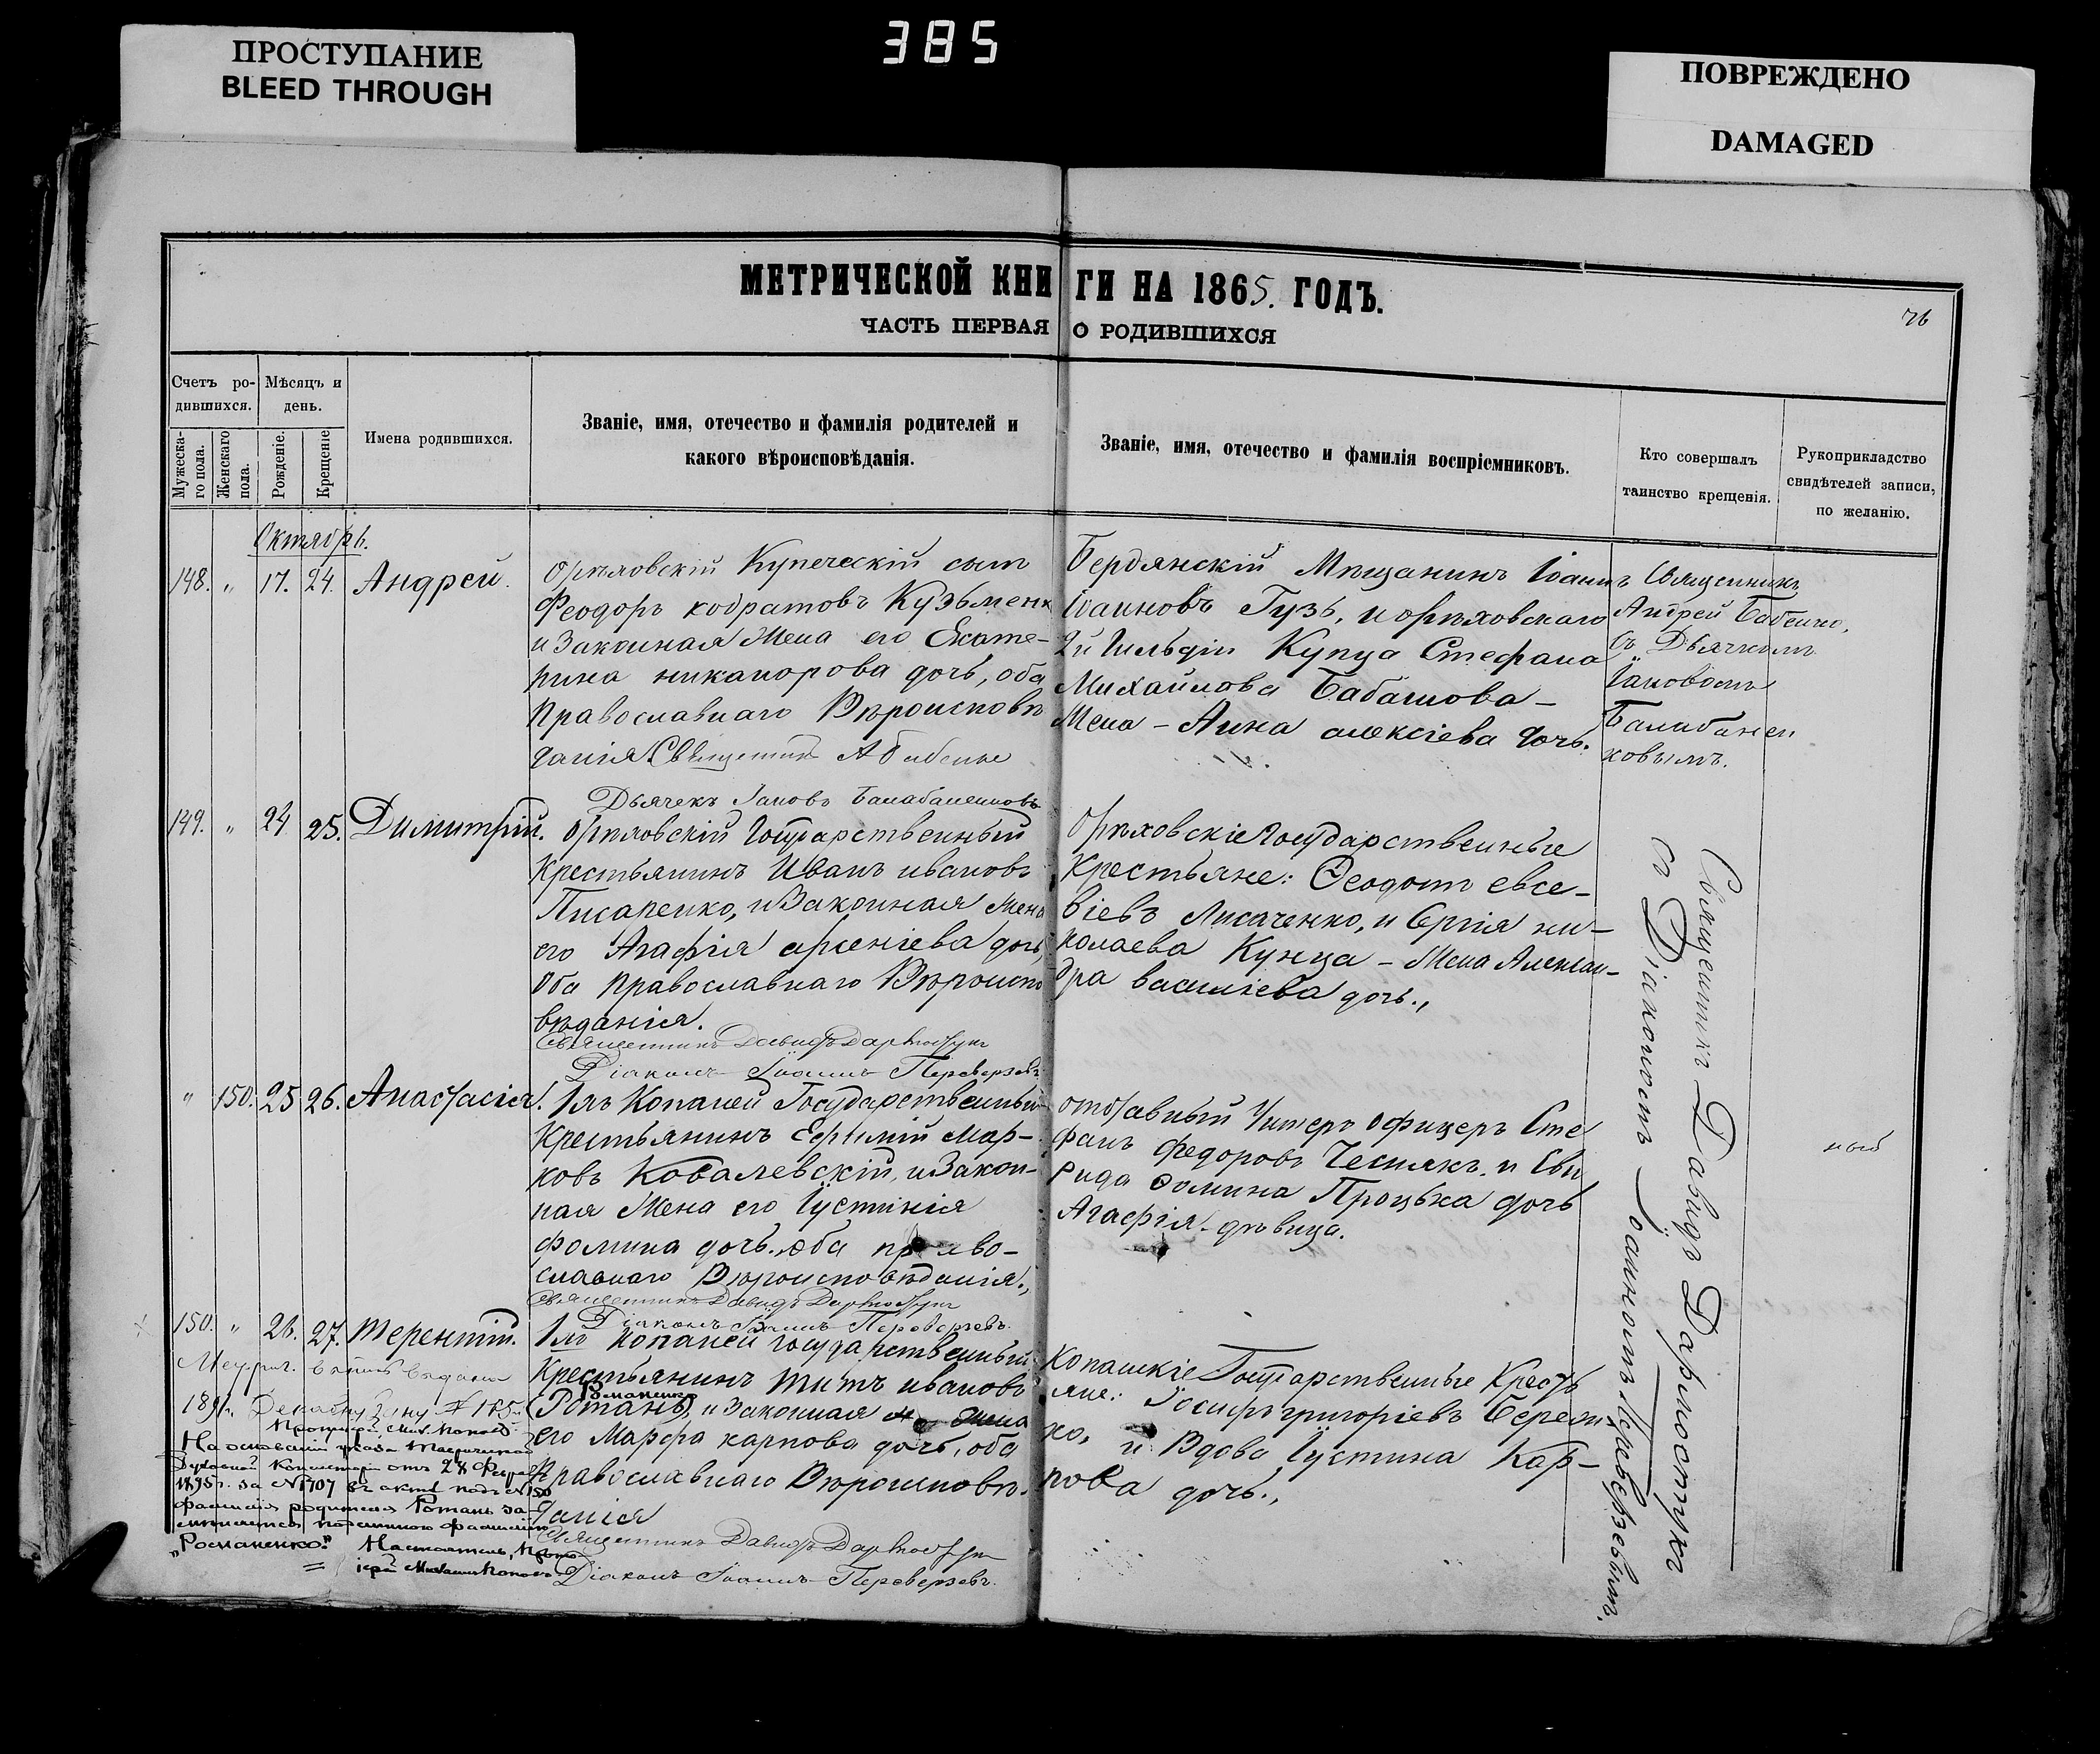 ПРОСТУПАНИЕ
BLEED THROUGH
385
ПОВРЕЖДЕНО
DAMAGED
МЕТРИЧЕСКОЙ КНИГИ НА 1865. ГОДЪ.
ЧАСТЬ ПЕРВАЯ О РОДИВШИХСЯ
76
Счетъ ро-
дившихся.
Мужеска-
го пола.
Женскаго
пола.
Мѣсяцъ и
день.
Рожденіе.
Крещеніе
Имена родившихся.
Званіе, имя, отечество и фамилія родителей и
какого вѣроисповѣданія.
Званіе, имя, отечество и фамилія воспріемниковъ.
Кто совершалъ
таинство крещенія.
Рукоприкладство
свидѣтелей записи,
по желанію.
Октябрь.
148. „ 17. 24. Андрей.
Орѣховскій Купеческій сынъ
Феодоръ кодратовъ Кузьменк
и Законная Жена его Екате-
рина никанорова дочь, оба
Православнаго Вѣроисповѣ
данія. Священник А Бабенко
Дьячекъ Іаковъ Балабаненковъ
Бердянскій Мѣщанинъ Іоаннъ
Іоанновъ Гузь, и орѣховскаго
2й Гильдіи Купца Стефана
Михайлова Бабашова –
Жена – Анна алексіева дочь.
Священникъ
Андрей Бабенко,
съ Дьячкомъ
Іаковомъ
Балабанен
ковымъ.
149. „ 24 25. Димитрій.
Орѣховскій Государственный
Крестьянинъ Иванъ ивановъ
Писаренко, и Законная Жена
его Агафія арсеніева дочь,
Оба Православнаго Вѣроиспо
вѣданія.
Священникъ Давидъ
Діаконъ Іоаннъ Переверзевъ
Орѣховскіе Государственные
Крестьяне: Ѳеодотъ евсе-
віевъ Лисаченко, и Сергія ни-
колаева Кунца – Жена Алексан-
дра василіева дочь.,
Священникъ Давидъ
съ Діакономъ Іоанномъ Переверзевымъ.
„ 150. 25 26. Анастасія.
Изъ Копаней Государственный
Крестьянинъ Ефимій Мар-
ковъ Ковалевскій, и Закон-
ная Жена его Іустинія
фомина дочь. оба право-
славнаго Вѣроисповѣданія.,
Священникъ Давидъ
Діаконъ Іоаннъ Переверзевъ.
отставный Унтеръ офицеръ Сте
фанъ Федоровъ Чеснякъ, и Сви
рида фомина Процька дочь
Агафія – дѣвица.
150. „ 26. 27. Терентій.
Изъ Копаней государственный
Крестьянинъ Титъ ивановъ
Романенко
(Ротань), и Законная Жена
его Марфа карпова дочь, оба
Православнаго Вѣроисповѣ-
данія
Священникъ Давидъ
Діаконъ Іоаннъ Переверзевъ.
Копанскіе Государственные Кресть
яне: Іосифъ григоріевъ Берези
ко, и Вдова Іустина Кар-
пова дочь.,
На основаніи указа Таврической
Духовной Консисторіи отъ 28 Февра
1895 г. за №1707 въ актѣ подъ №150
фамилія родителя Ротань за-
„Романенко“ Настоятель, Прото
іерей Михаилъ Поповъ